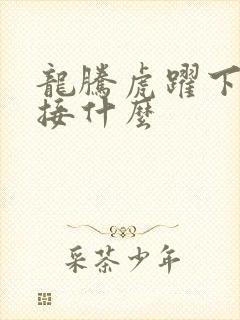 龍騰虎躍下
接什麼
采茶少年